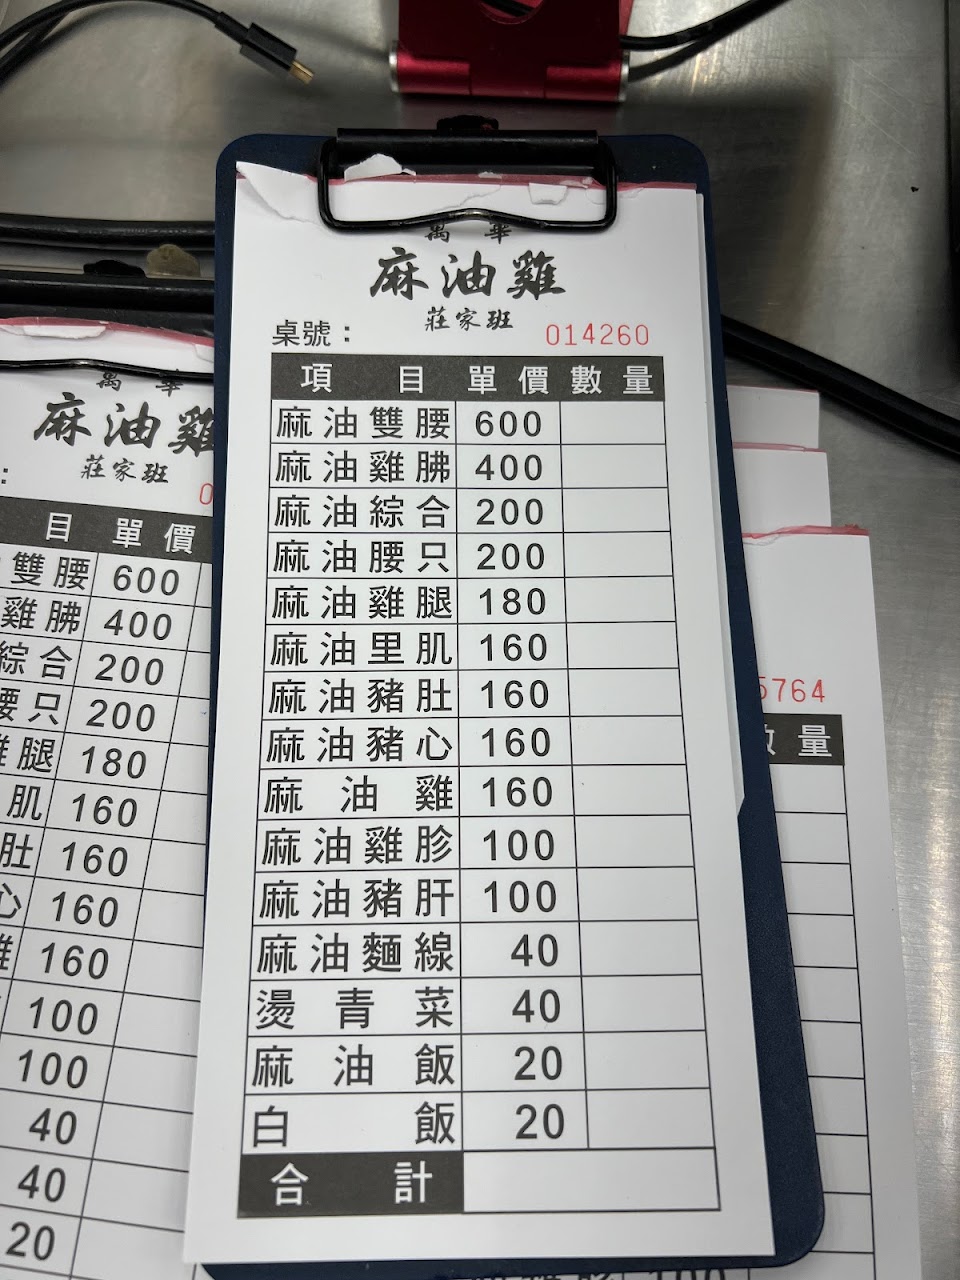 萬 華
麻油雞
莊家班
桌號：
014260
項目 單價 數量
麻油雙腰 600
麻油雞胇 400
麻油綜合 200
麻油腰只 200
麻油雞腿 180
麻油里肌 160
麻油豬肚 160
麻油豬心 160
麻油雞 160
麻油雞胗 100
麻油豬肝 100
麻油麵線 40
燙青菜 40
麻油飯 20
白飯 20
合計
萬 華
麻油雞
莊家班
：
0
目 單價
雙腰 600
雞胇 400
綜合 200
腰只 200
雞腿 180
肌 160
肚 160
心 160
雞 160
100
100
40
40
20
5764
數量